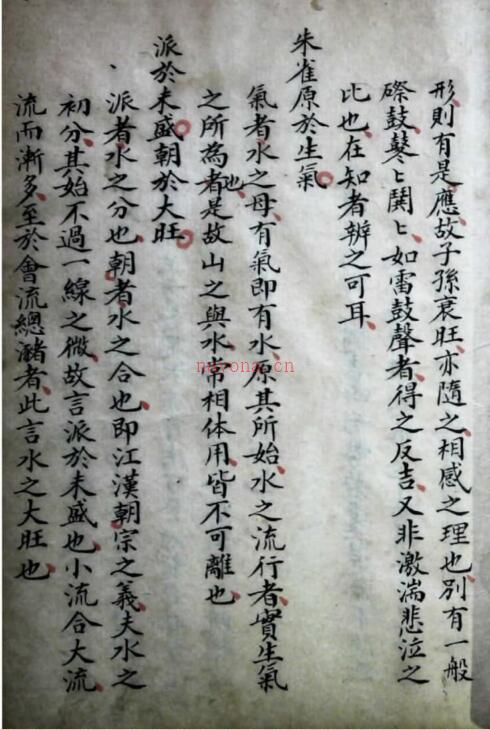 形則有是應故子孫衰旺亦隨之相感之理也別有一般
磜鼓鼕〻鬨〻如雷鼓聲者得之反吉又非激湍悲泣之
比也在知者辨之可耳
朱雀原於生氣
氣者水之母有氣即有水原其所始水之流行者實生氣
之所為也者是故山之與水常相体用皆不可離也
派於未盛朝於大旺
派者水之分也朝者水之合也即江漢朝宗之義夫水之
初分其始不過一線之微故言派於未盛也小流合大流
流而漸多至於會流總瀦者此言水之大旺也
nayona.cn